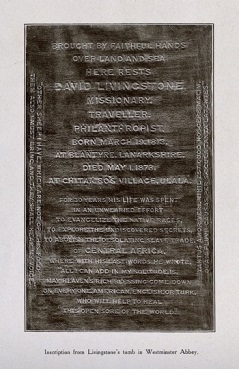 BROUGHT BY FAITHFUL HANDS
OVER LAND AND SEA
HERE RESTS
DAVID LIVINGSTONE,
MISSIONARY,
TRAVELLER,
PHILANTHROPIST,
BORN MARCH 19. 1813,
AT BLANTYRE, LANARKSHIRE,
DIED MAY 1, 1873,
AT CHITAMBO'S VILLAGE, ULALA.
FOR 30 YEARS HIS LIFE WAS SPENT
IN AN UNWEARIED EFFORT
TO EVANGELIZE THE NATIVE RACES,
TO EXPLORE THE UNDISCOVERED SECRETS,
TO ABOLISH THE DESOLATING SLAVE TRADE,
OF CENTRAL AFRICA,
WHERE WITH HIS LAST WORDS HE WROTE,
"ALL I CAN ADD IN MY SOLITUDE, IS,
MAY HEAVEN'S RICH BLESSING COME DOWN
ON EVERY ONE, AMERICAN, ENGLISH, OR TURK,
WHO WILL HELP TO HEAL
THIS OPEN SORE OF THE WORLD."
OTHER SHEEP I HAVE, WHICH ARE NOT OF THIS FOLD:
THEM ALSO I MUST BRING
Inscription from Livingstone's tomb in Westminster Abbey.